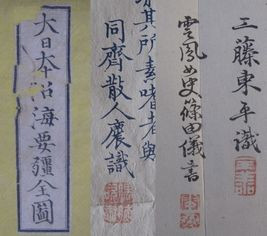 三藤東平識
雲鳳女史篠田儀書
其所素嗜者與
同齊散人褧識
大日本沿海要疆全圖